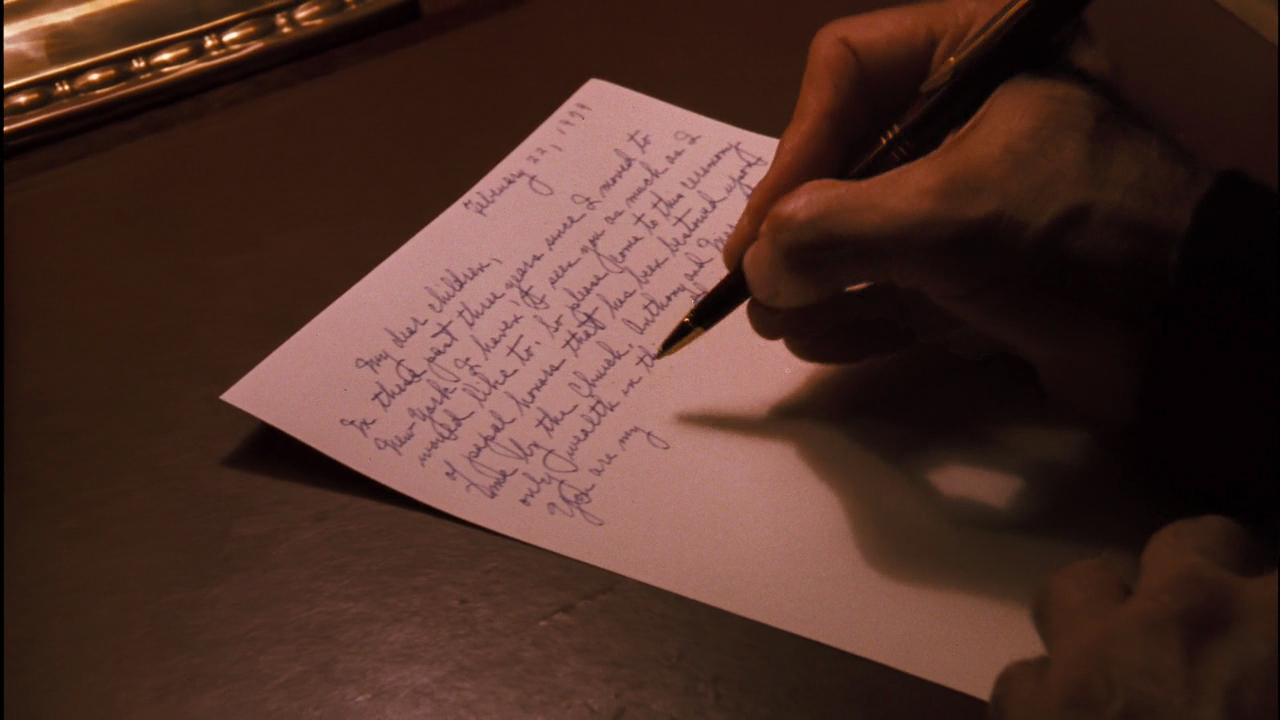 February 22, 1979
My dear children,
In these past three years since I moved to
New York I haven't seen you as much as I
would like to. So please come to this ceremony
of papal honors that has been bestowed upon
me by the Church. Anthony and Mary
only wealth in th
You are my